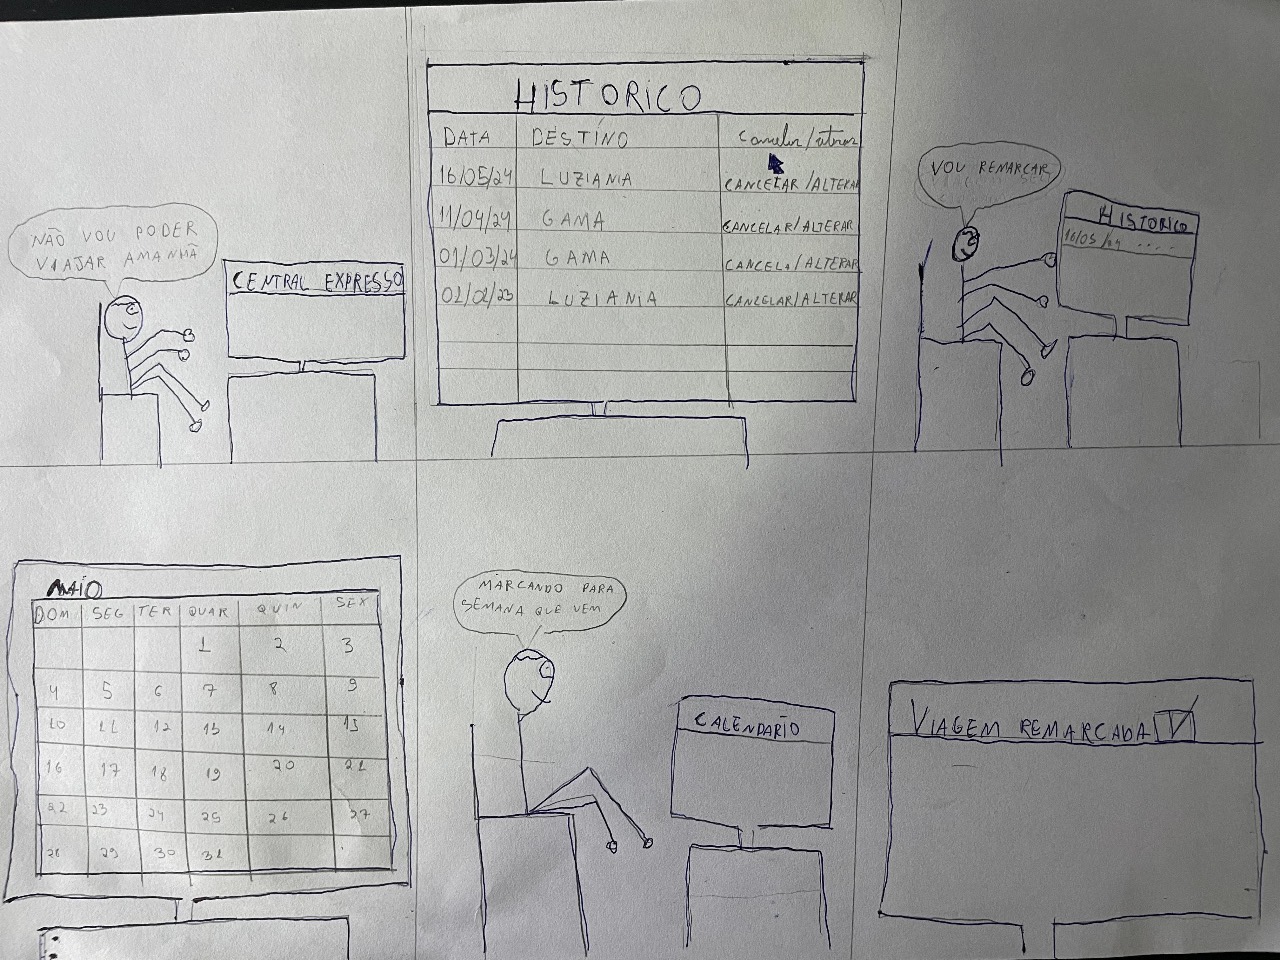 NÃO VOU PODER
VIAJAR AMANHÃ
CENTRAL EXPRESSO
HISTORICO
DATA DESTINO Cancelar/alterar
16/05/24 LUZIANIA CANCELAR/ALTERAR
11/04/24 GAMA CANCELAR/ALTERAR
01/03/24 GAMA CANCELA/ALTERAR
02/02/23 LUZIANIA CANCELAR/ALTERAR
VOU REMARCAR
HISTORICO
16/05/24 ....
MAIO
DOM SEG TER QUAR QUIN SEX
1 2 3
4 5 6 7 8 9
10 11 12 13 14 15
16 17 18 19 20 21
22 23 24 25 26 27
28 29 30 31
MARCANDO PARA
SEMANA QUE VEM
CALENDARIO
VIAGEM REMARCADA